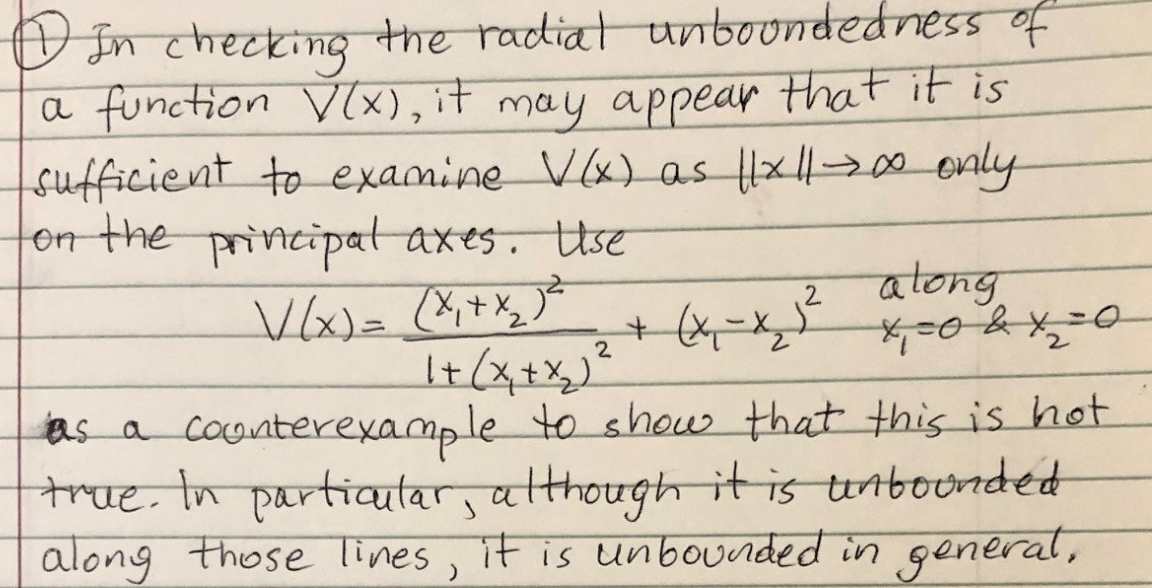 ① In checking the radial unboundedness of
a function V(x), it may appear that it is
sufficient to examine V(x) as ||x||→∞ only
on the principal axes. Use
V(x)= (x₁+x₂)² / 1+(x₁+x₂)² + (x₁-x₂)² along x₁=0 & x₂=0
as a counterexample to show that this is not
true. In particular, although it is unbounded
along those lines, it is unbounded in general.